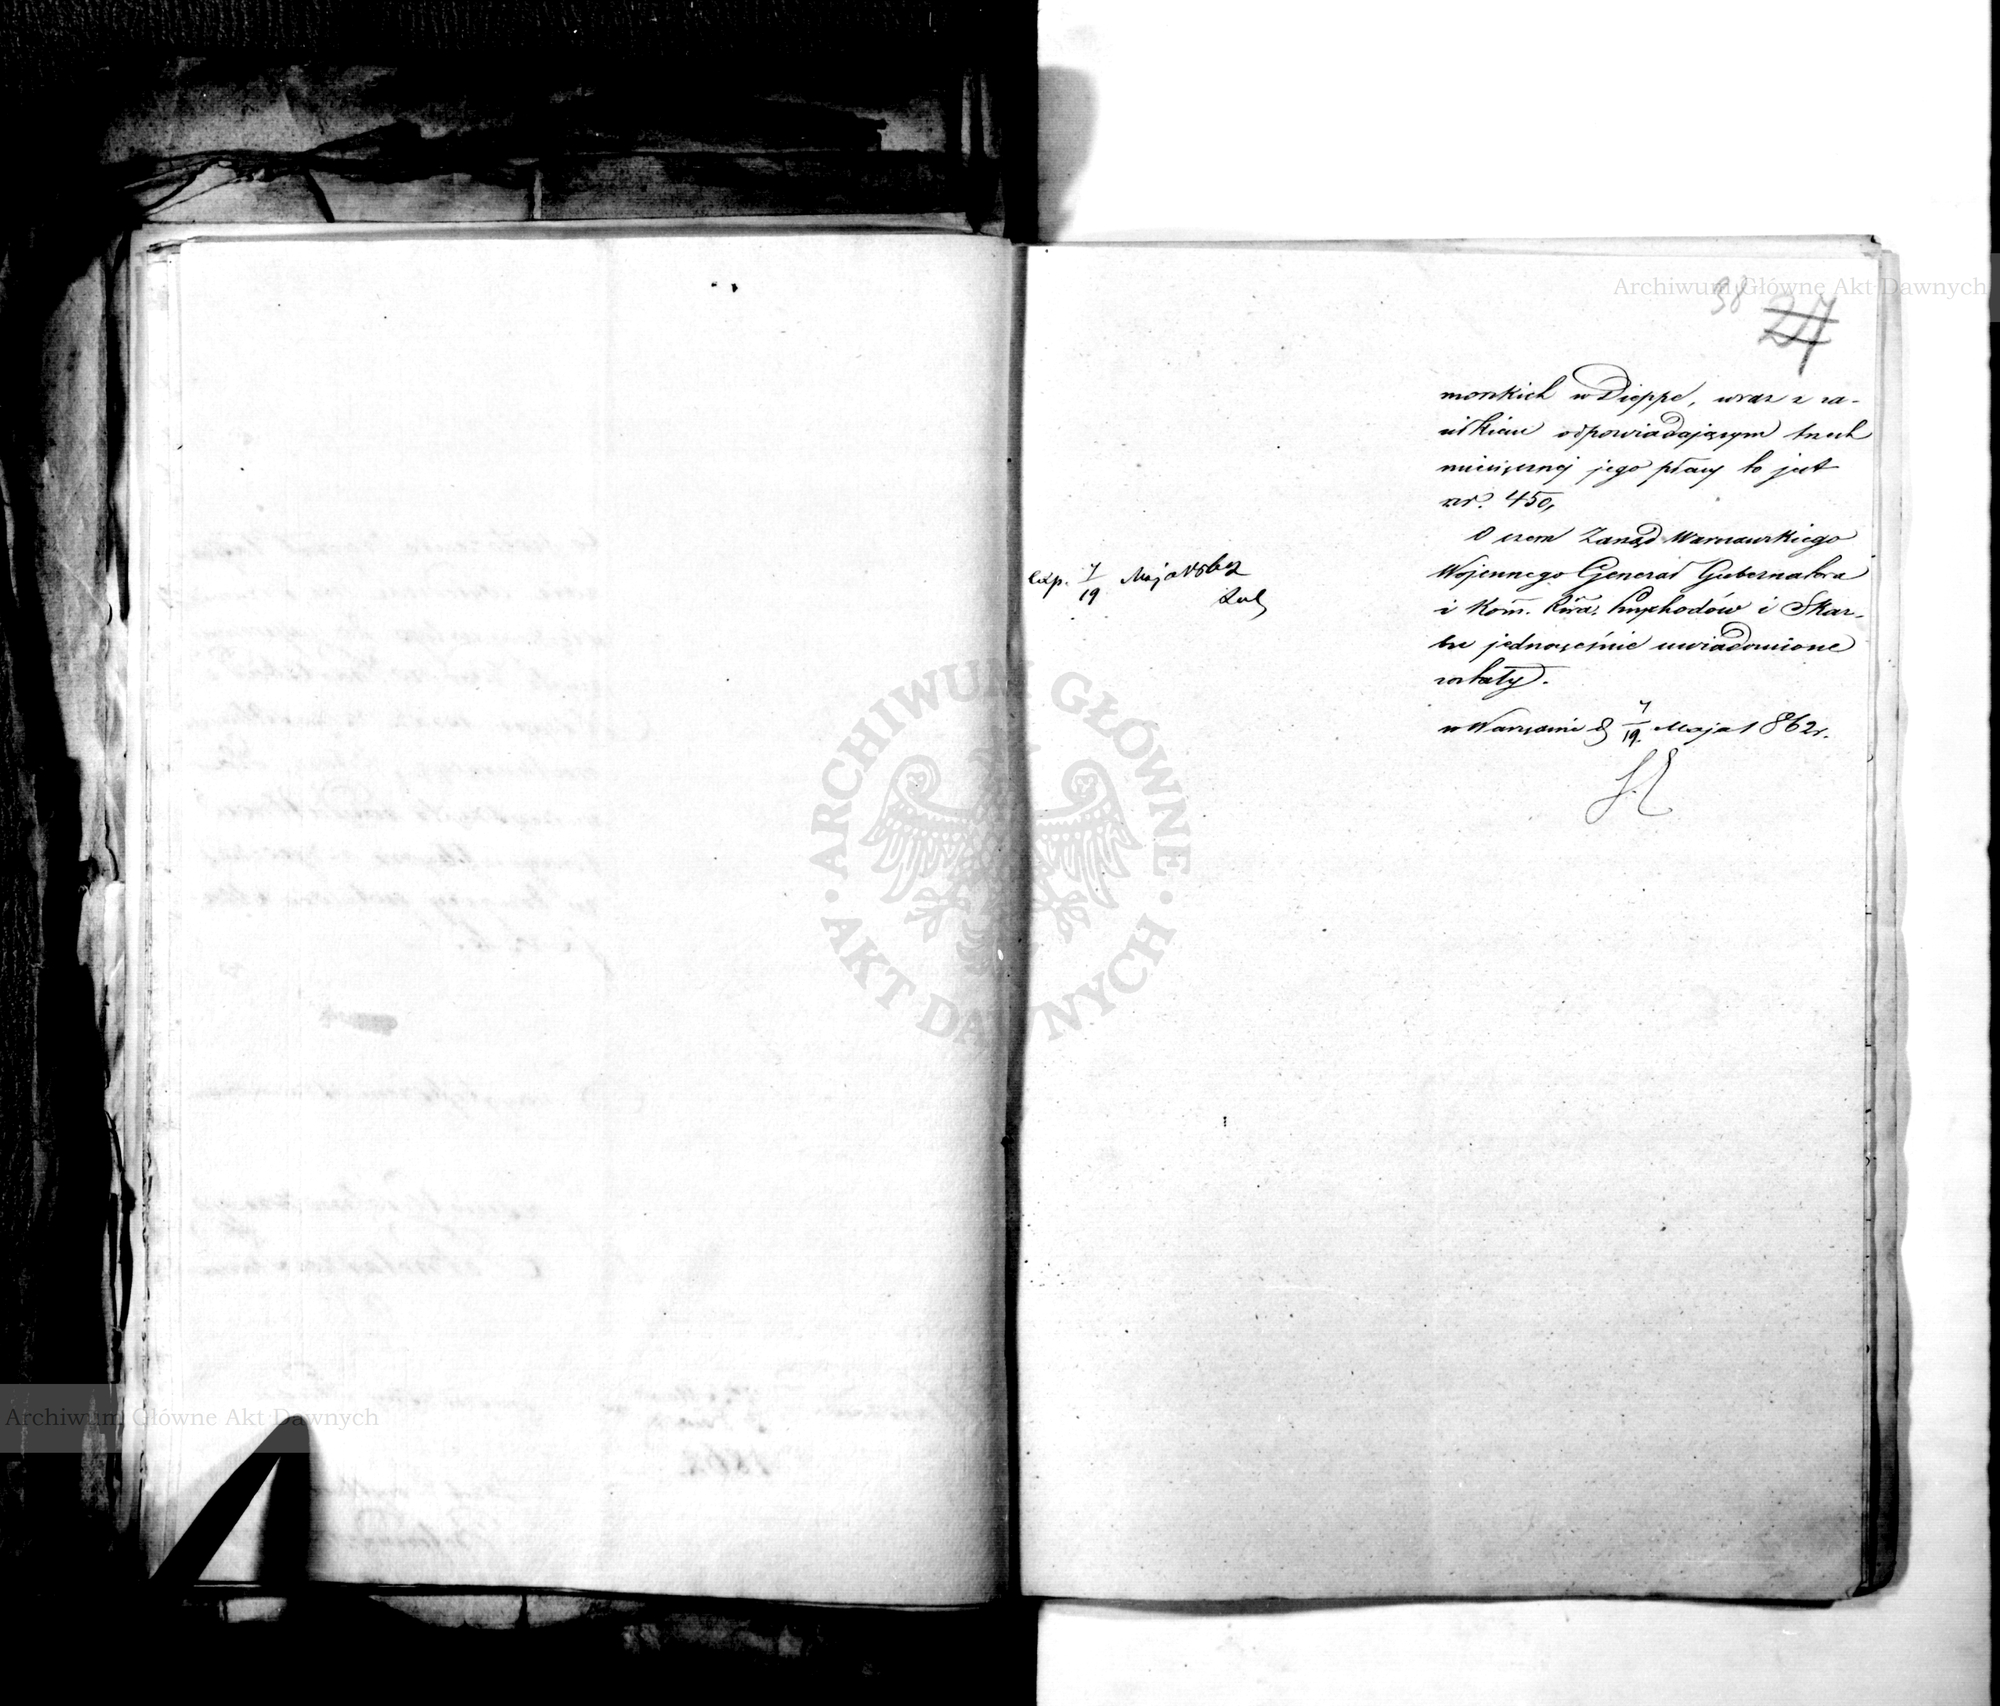 38 27
morskich w Dieppe, wraz z za-
siłkiem odpowiadającym trzech
miesięcznej jego płacy to jest
rs. 450,
O czem Zarząd Warszawskiego
Wojennego Generał Gubernatora
i Kom. Rzą. Przychodów i Skar-
bu jednocześnie uwiadomione
zostały.
w Warszawie d 7/19 Maja 1862 r.
Exp. 7/19 Maja
Archiwum Główne Akt Dawnych
ARCHIWUM GŁÓWNE · AKT DAWNYCH ·
Archiwum Główne Akt Dawnych